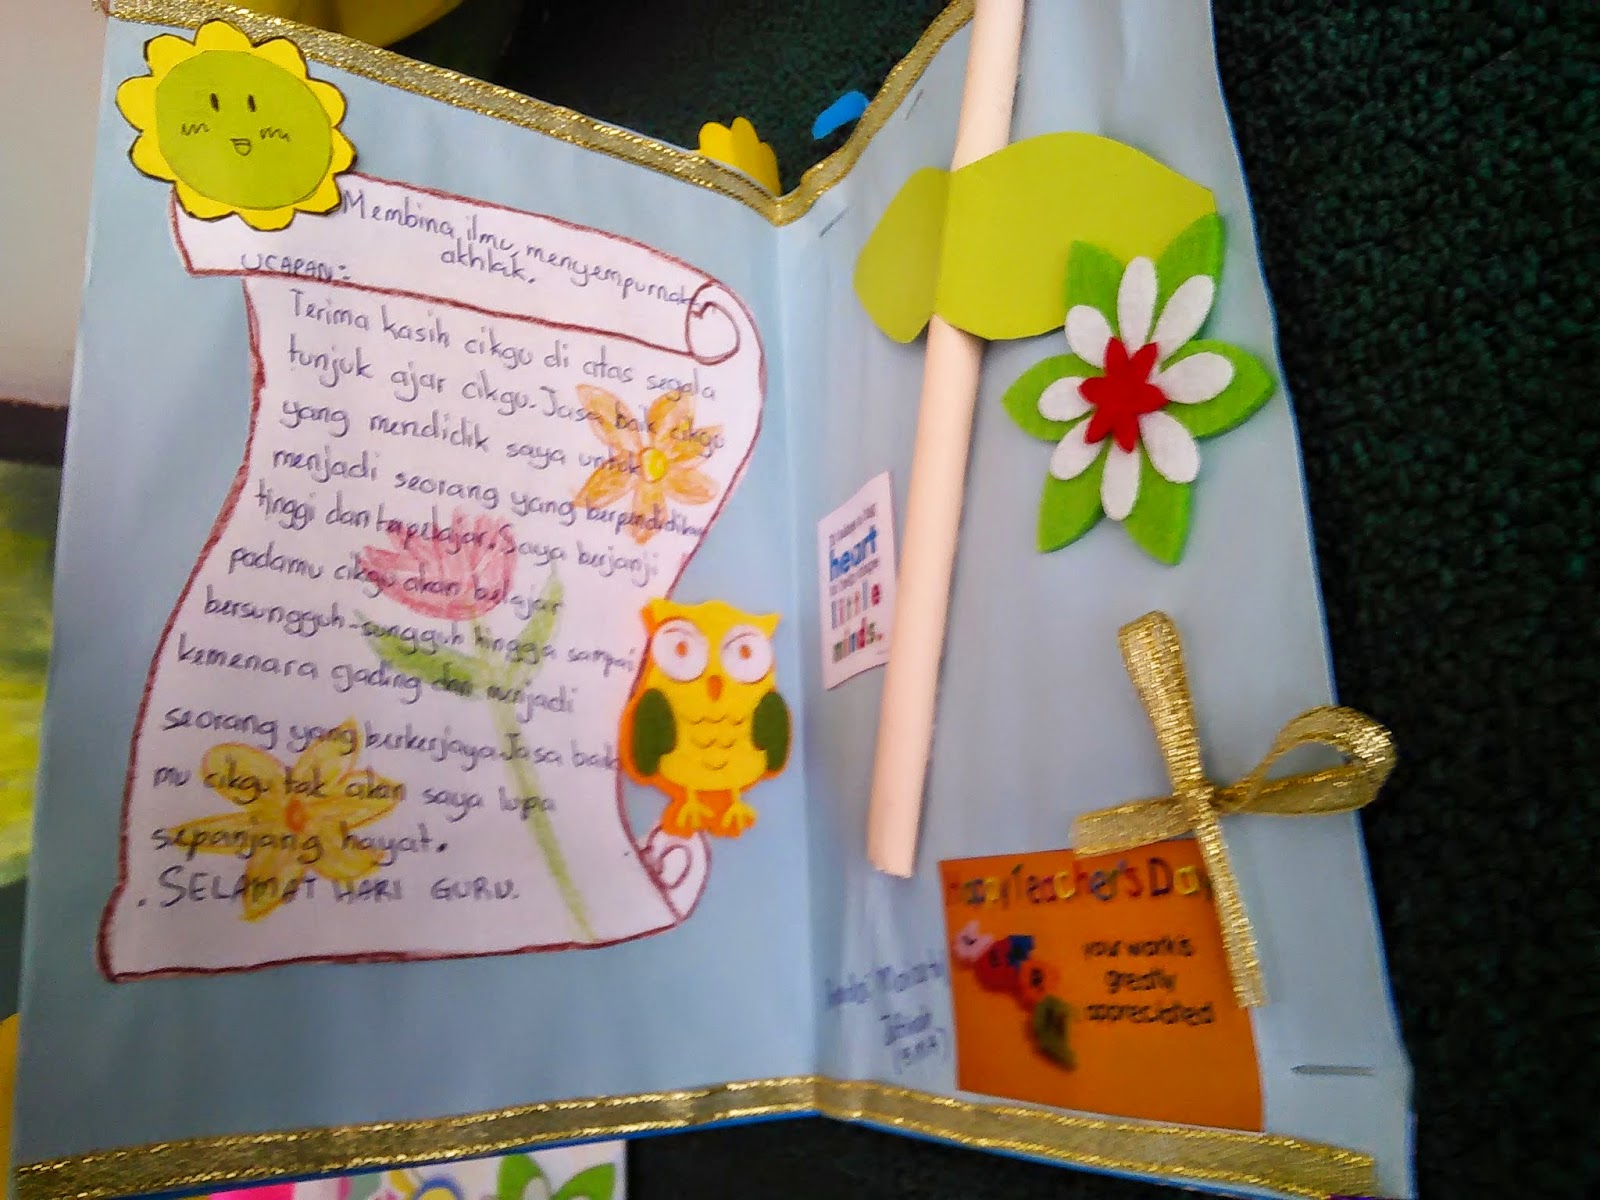 Membina ilmu, menyempurnakan
akhlak.
UCAPAN:
Terima kasih cikgu di atas segala
tunjuk ajar cikgu. Jasa baik cikgu
yang mendidik saya untuk
menjadi seorang yang berpendidikan
tinggi dan terpelajar. Saya berjanji
padamu cikgu akan belajar
bersungguh-sungguh hingga sampai
kemenara gading dan menjadi
seorang yang berkerjaya. Jasa baik
mu cikgu tak akan saya lupa
sepanjang hayat.
. SELAMAT HARI GURU.
heart
little
minds.
Happy Teacher's Day
your work is
greatly
appreciated